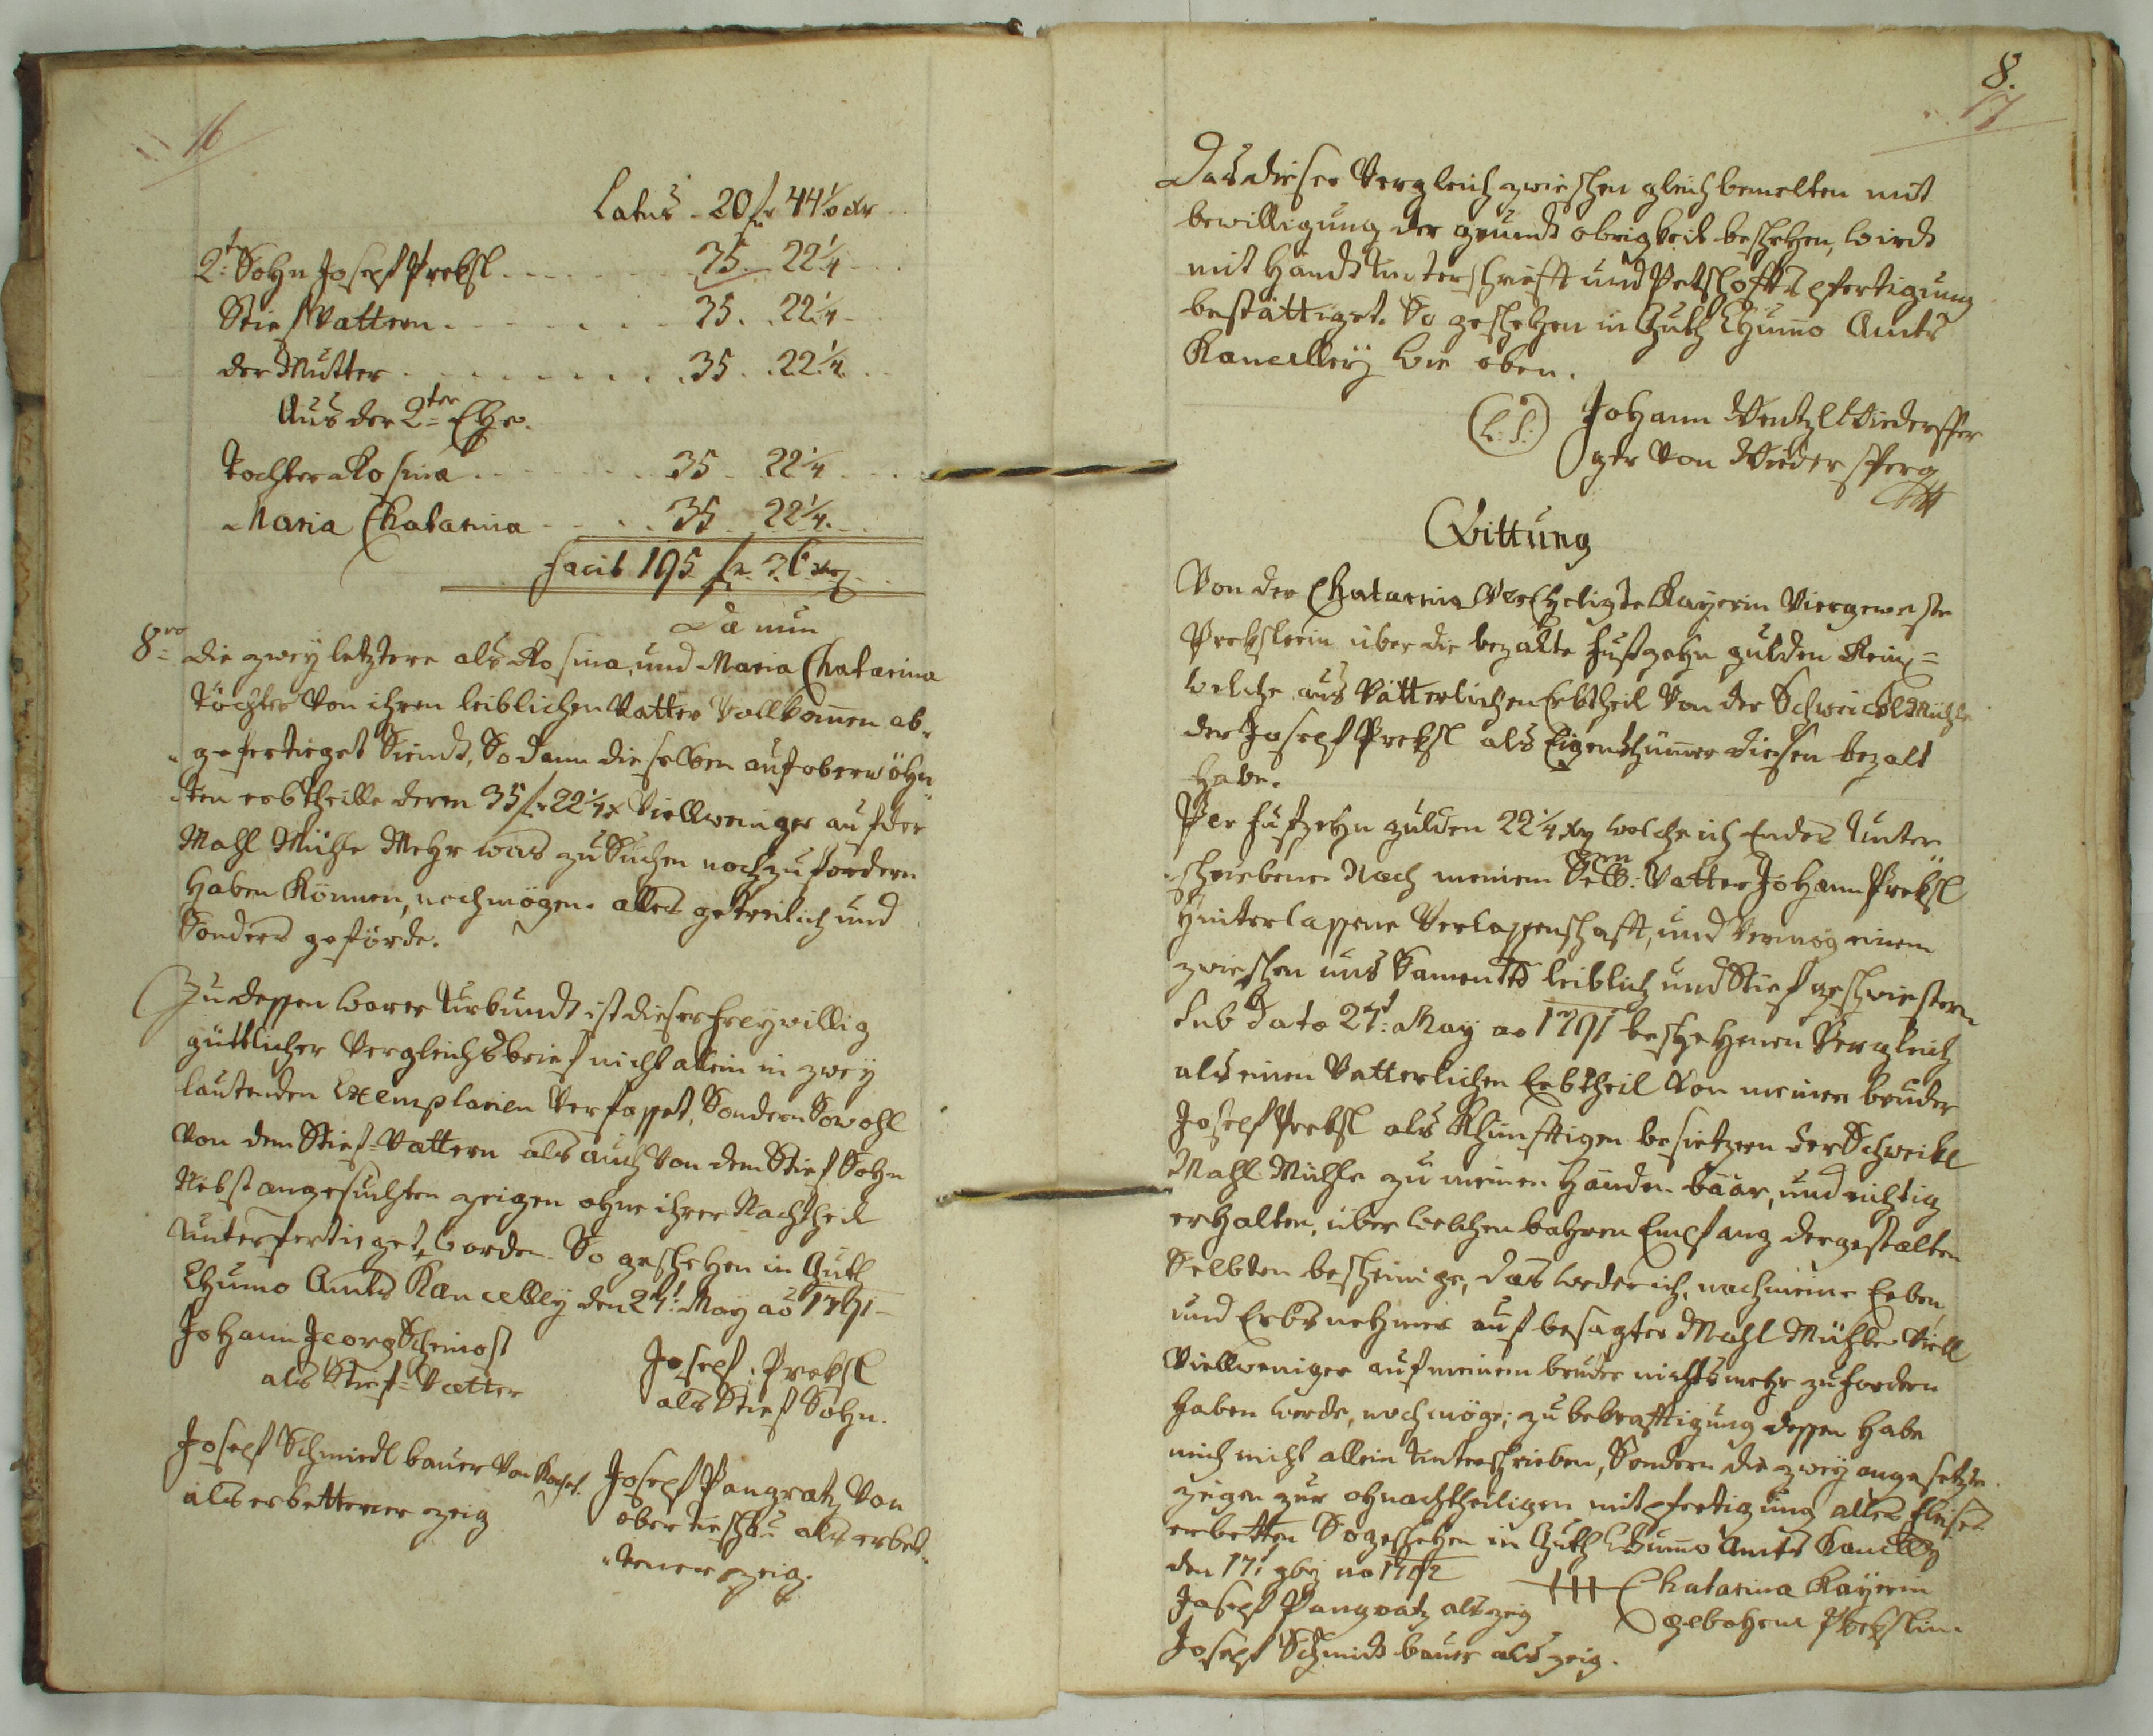 16
Latus - 20 fr 44 1/2 xr
2t Sohn Joseph Prexl - - - 35 - 22 1/4
Stief Vattern - - - 35 . . 22 1/4
der Mutter - - - 35 . . 22 1/4
Aus der 2ter Ehe.
Tochter Rosina - - - 35 - 22 1/4
Maria Chatarina - - - 35 - 22 1/4
facit 195 fr 36 xr
Da nun
8vo die zwey letztere als Rosina, und Maria Chatarina
Töchter Von ihren leiblichen Vatter Vollkomen ab-
gefertieget Siendt, So dann die selben auf oberwöhn-
ten erbtheille deren 35 fr 22 1/4 x Viellweniger auf der
Mahl Mühle Mehr was zu Suchen noch zu fordern
Haben Können, noch mögen. alles getreilich und
Sonders geförde.
Zu dessen warer Urkundt ist dieser freywillig
güttlicher Vergleichs brief nicht allein in zwey
lautenden Exemplarien Verfasset, Sondern Sowohl
Von dem Stief-Vattern als auch Von dem Stief Sohn
Nebst angesuchten zeigen ohne ihrer Nachtheil
Unterfertiget worden. So geschehen in Guth
Chumo Amts Kancelley den 24t May ao 1791
Johann Georg
als Stief-Vatter
Joseph Prexl
als Stief Sohn.
Joseph Schmiedl bauer Von
als erbettener zeig
Joseph Pangratz Von
als erbet-
tener zeig.
8.
17
Das dieser Vergleich zwieschen gleich bemelten mit
bewilligung der grundt obrigkeit beschehen, wirdt
mit Handt Unterschriefft und Petschoffts pfertigung
bestättiget. So geschehen in Guth Chumo Amts
Kancelley wie oben.
(L: S:) Johann Wentzl Widersper
ger Von Widersperg
Quittung
Von der Chatarina Verehligte Bayerin Vier gewesste
Prexlerin über die bezalte fufzehn gulden Rein=
welche aus Vätterlichen Erbtheil Von der Schweickl Mühle
der Joseph Prexl als Eigenthümer diesen bezalt
habe.
Per fufzehn gulden 22 1/4 xr welche ich Endes Unter
schriebene Nach meinem Vatter Johann Prexl
Hinterlassene Verlassenschafft, und Vermög einem
zwieschen uns Samentd leiblich und Stief geschwiestern
Sub Dato 24t May ao 1791 beschehenen Vergleich
als einen Vatterlichen Erbtheil Von meinen bruder
Joseph Prexl als Khünfftigen besietzern der Schweickl
Mahl Mühle zu meinen Handen baar, und richtig
erhalten, über welchen bahren Empfang dergestalten
Selbten bescheinige, das weder ich, noch meine Erben,
und Erbsnehmer auf besagter Mahl Mühle Viell
Viellweniger auf meinem bruder nichts mehr zu fordern
haben werde, noch möge; zu bekrafftigung dessen habe
mich nicht allein Unterschrieben, Sondern die zwey angesetzte
zeigen zur ohnachtheiligen mitpfertigung alles fleises
erbetten So geschehen in Guth Chumo Amts Kancelley
den 17t 9br ao 1792
+++ Chatarina Bayerin
gebohrene Prexlin
Joseph Pangratz als zeig
Joseph Schmidt bauer als zeig.